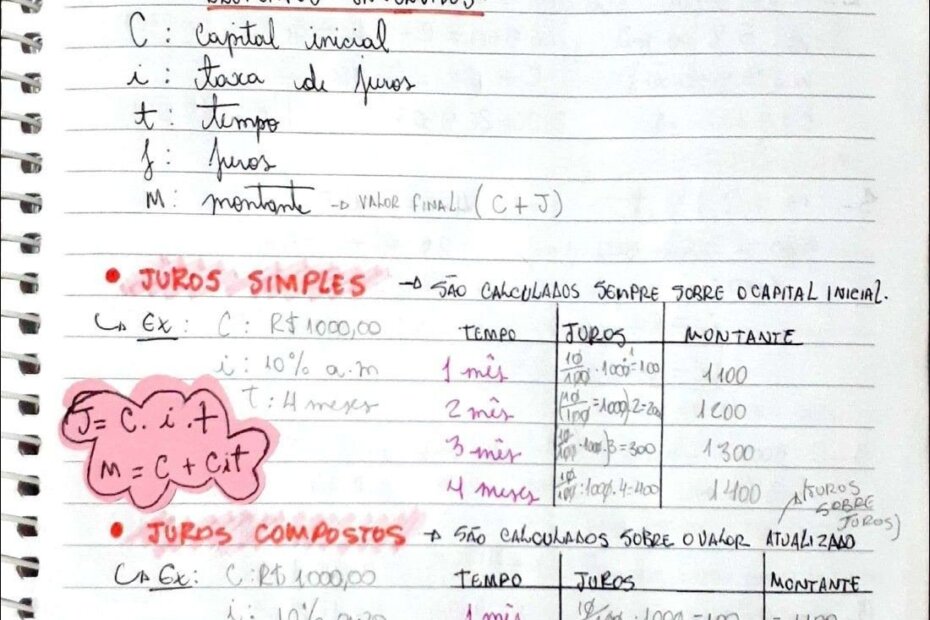 C: capital inicial
i: taxa de juros
t: tempo
J: juros
M: montante → VALOR FINAL (C + J)
• JUROS SIMPLES → SÃO CALCULADOS SEMPRE SOBRE O CAPITAL INICIAL.
↳ Ex: C: R$1000,00 TEMPO JUROS MONTANTE
i: 10% a.m 1 mês 10/100 . 1000 = 100 1100
t: 4 meses 2 mês (10/100 = 1000).2=200 1200
J = C. i .t
3 mês (10/100 . 1000).3=300 1300
M = C + Cit
4 meses 10/100 . 1000 . 4=400 1400
(JUROS SOBRE JUROS)
• JUROS COMPOSTOS → SÃO CALCULADOS SOBRE O VALOR ATUALIZADO
↳ Ex: C: R$1000,00 TEMPO JUROS MONTANTE
i: 10% a.m 1 mês 10/100 . 1000 = 100